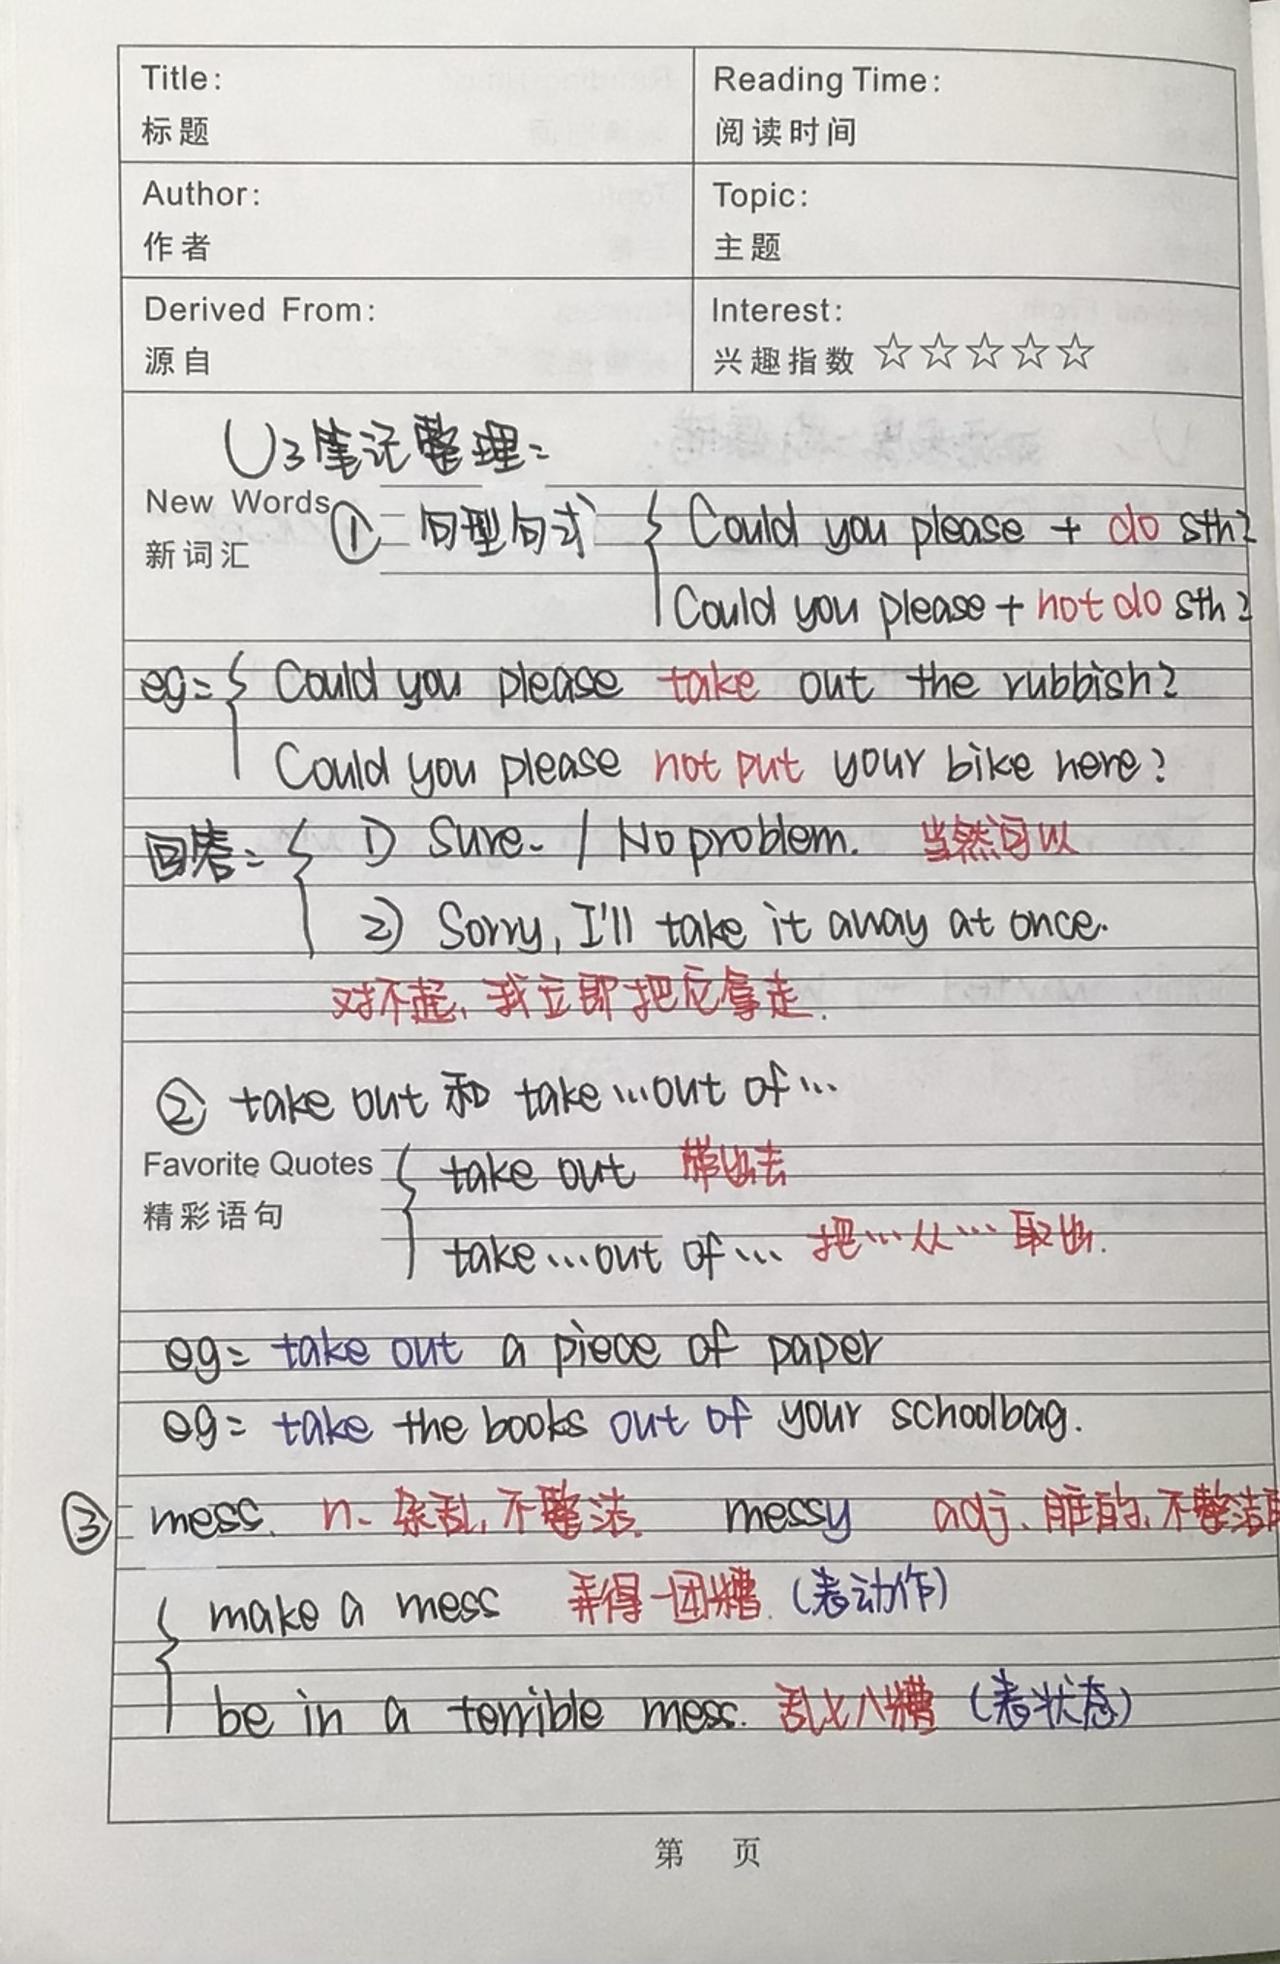 Title:
标题
Reading Time:
阅读时间
Author:
作者
Topic:
主题
Derived From:
源自
Interest:
兴趣指数 ☆☆☆☆☆
U3笔记整理:
New Words
新词汇
① 句型句式 { Could you please + do sth?
Could you please + not do sth?
eg: { Could you please take out the rubbish?
Could you please not put your bike here?
回答: { 1) Sure. / No problem. 当然可以
2) Sorry, I'll take it away at once.
对不起, 我立即把它拿走.
② take out 和 take…out of…
Favorite Quotes
精彩语句
{ take out 带出去
take…out of… 把…从…取出.
eg: take out a piece of paper
eg: take the books out of your schoolbag.
③ mess. n. 杂乱, 不整洁. messy adj. 脏的, 不整洁的
{ make a mess 弄得一团糟. (表动作)
be in a terrible mess. 乱七八糟 (表状态)
第 页